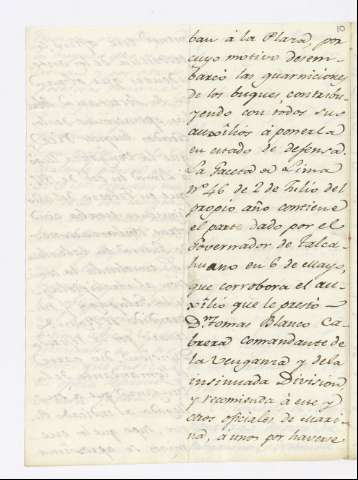 10
ban à la Plaza por
cuyo motivo desem-
barcó las guarniciones
de los buques contribu-
yendo con todos sus
auxîlios à ponerla
en estado de defensa.
La Gaceta de Lima
nº. 46 de 2 de Julio del
propio año contiene
el parte dado por el
Governador de Talca-
huano en 6 de Mayo,
que corrobora el au-
xîlio que le prestò
Dn. Tomas Blanco Ca-
brera comandante de
la Venganza y de la
insinuada Division
y recomienda à este y
otros oficiales de Mari-
na, à unos por haverse